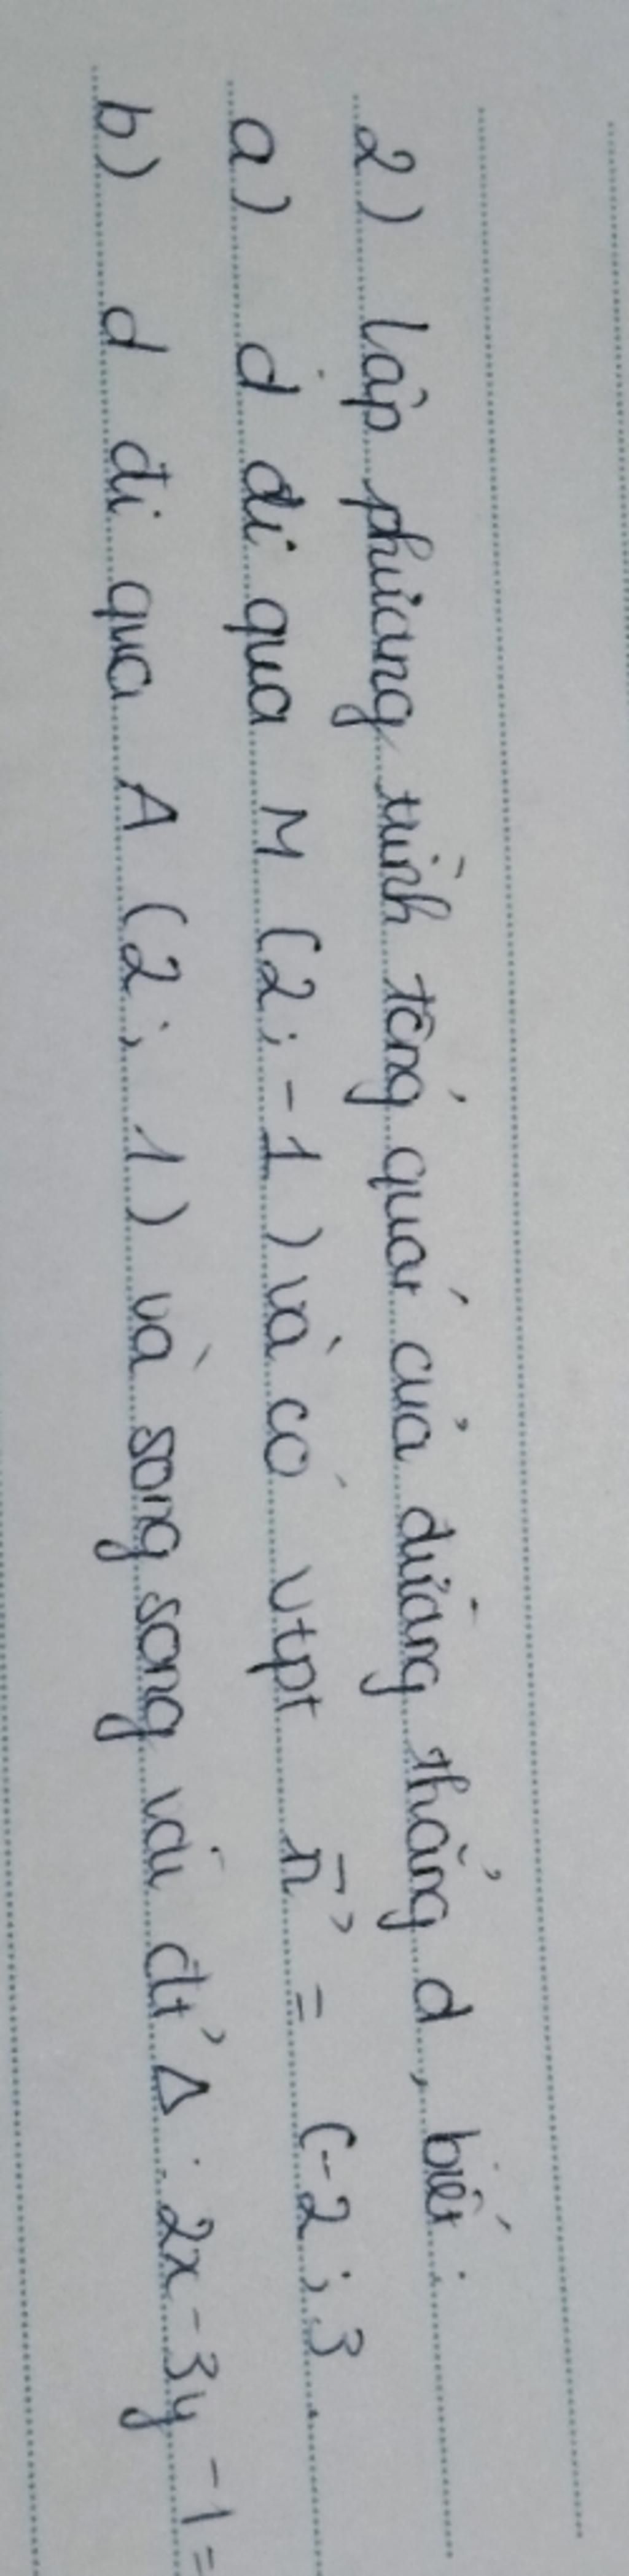 2) Lập phương trình tổng quát của đường thẳng d, biết:
a) d đi qua M (2; -1) và có vtpt n⃗ = (-2; 3
b) d đi qua A (2; 1) và song song với đt Δ: 2x - 3y - 1 =